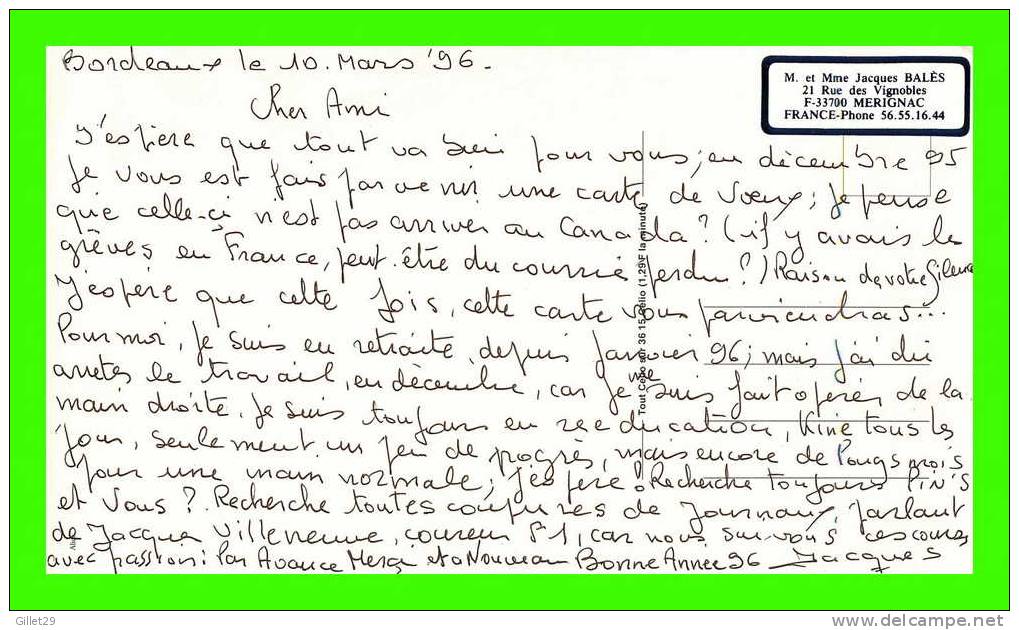 Bordeaux le 10. Mars '96.
M. et Mme Jacques BALÈS
21 Rue des Vignobles
F-33700 MERIGNAC
FRANCE-Phone 56.55.16.44
Cher Ami
J'espère que tout va bien pour vous; en décembre 95
Je vous est fais parvenir une carte de Voeux; je pense
que celle-ci n'est pas arriver au Canada? (il y avais les
grèves en France, peut.être du courrié perdu?) Raison de votre Silence
J'espère que cette fois, cette carte vous parviendras...
Pour moi, Je suis en retraite depuis Janvier 96; mais j'ai du
arretes le travail, en décembre, car je me suis fait opérer de la
main droite. Je suis toujours en rééducation, Kiné tous les
jour, seulement un peu de progrès, mais encore de longs mois
pour une main normale; J'espère! Recherche toujours PIN'S
et Vous? Recherche toutes coupures de Journaux, parlant
de Jacques Villeneuve, coureur F1, car nous suivons ces courses
avec passion: Par Avance Merçi et a Nouveau Bonne Année 96 Jacques
Tout Célio sur 36 15 Célio (1,29 F la minute)
Gillet29
delcampe.net